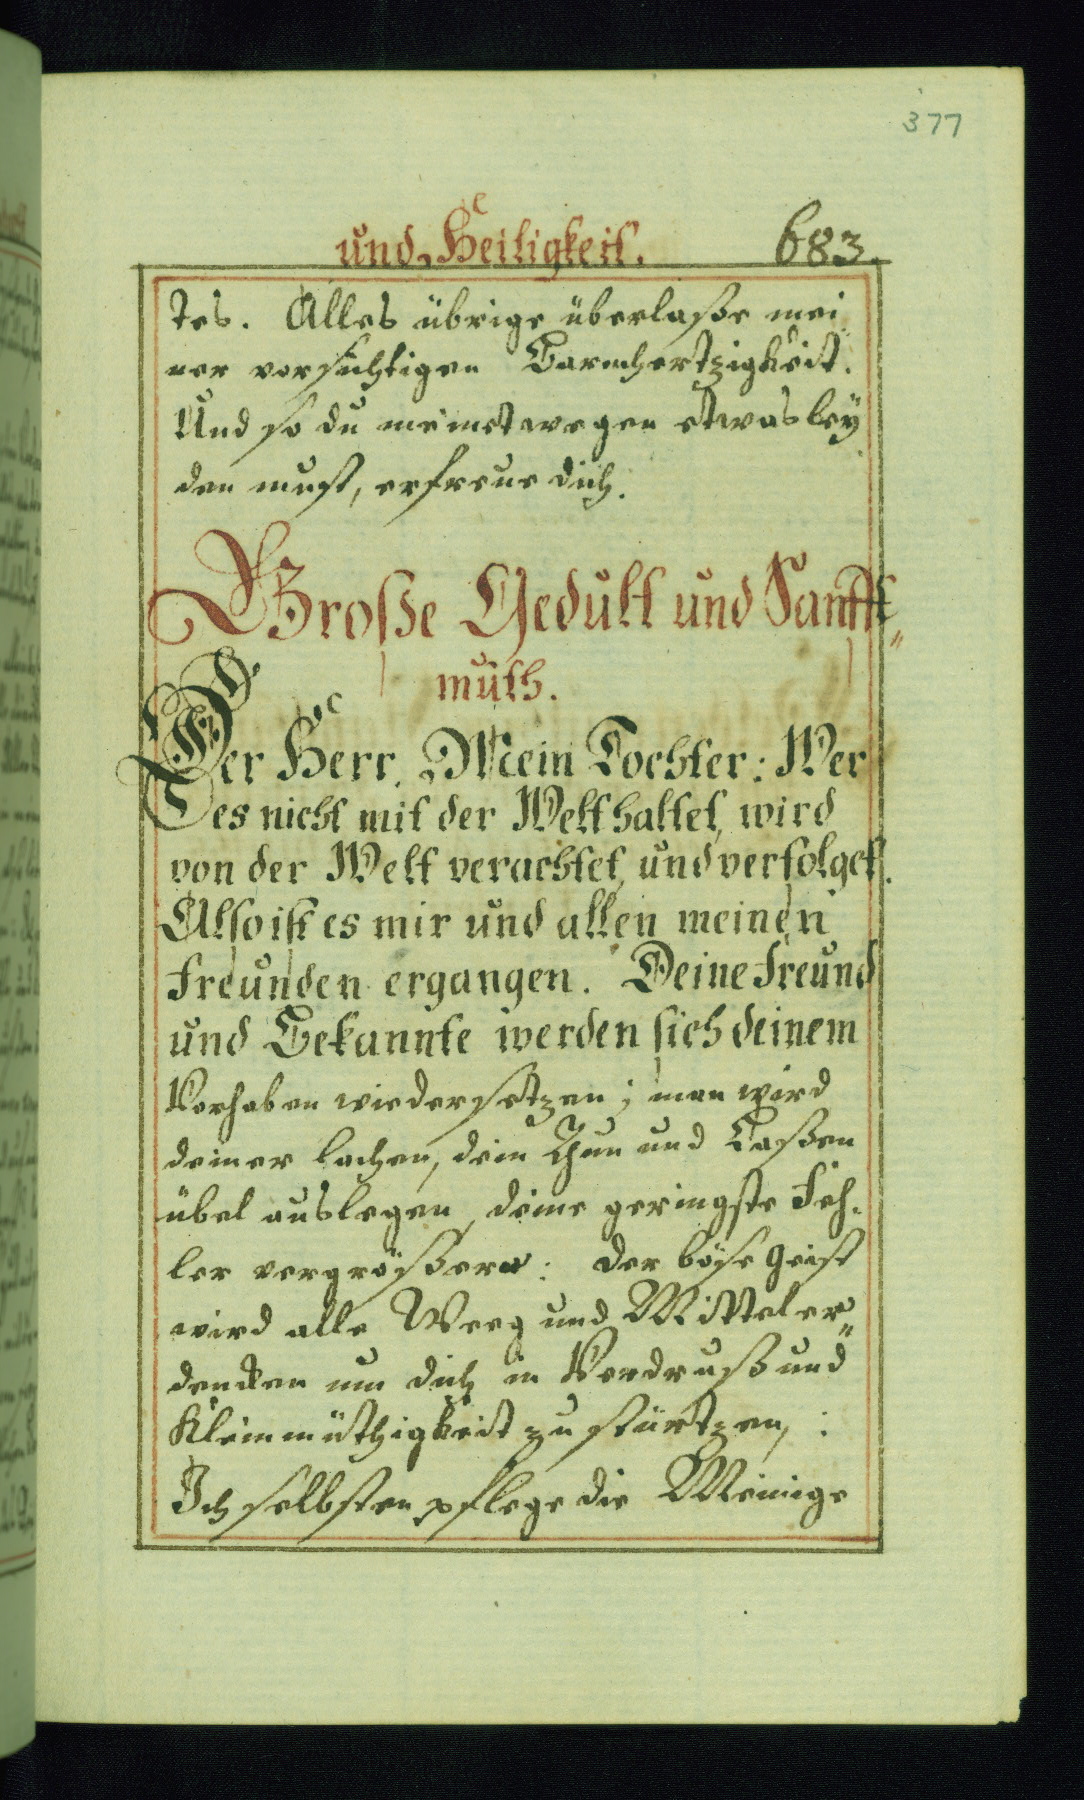 377
und Heiligkeit. 683.
tes. Alles übrige überlaße mei
ner vorsichtigen Barmhertzigkeit.
Und so du meinetwegen etwas ley
den must, erfreue dich.
Große Gedult und Sanfft„
muth.
Der Herr. Mein Tochter: Wer
es nicht mit der Welt haltet, wird
von der Welt verachtet, und verfolget.
Also ist es mir und allen meinen
freunden ergangen. Deine freund
und Bekannte werden sich deinem
Vorhaben wiedersetzen; man wird
deiner lachen, dein Thun und Laßen
übel auslegen, deine geringste Feh„
ler vergrößern: der böse Geist
wird alle Weeg und Mittel er„
dencken um dich in Verdruß und
Kleinmüthigkeit zu stürtzen,:
Ich selbsten pflege die Meinige